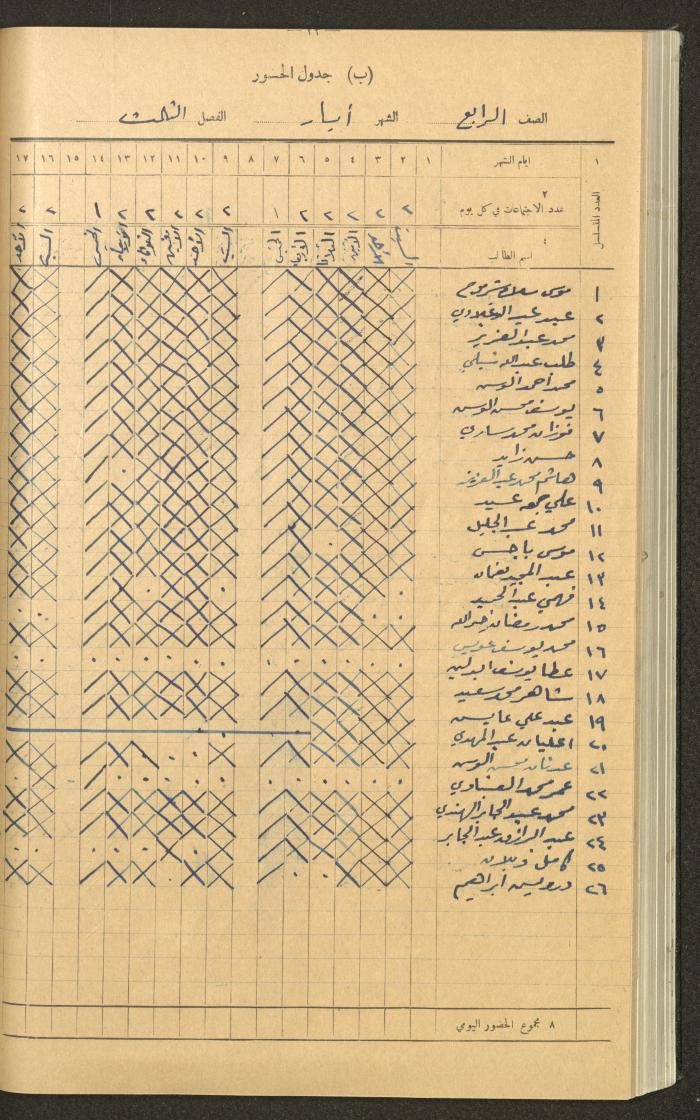 (ب) جدول الحضور
الصف الرابع الشهر أيار الفصل الثالث
١ ايام الشهر ١ ٢ ٣ ٤ ٥ ٦ ٧ ٨ ٩ ١٠ ١١ ١٢ ١٣ ١٤ ١٥ ١٦ ١٧
العدد المتسلسل
٢
عدد الاجتماعات في كل يوم ٢ ٢ ٢ ٢ ٢ ١ ٢ ٢ ٢ ٢ ٢ ١ ٢ ٢
٤
اسم الطالب السبت الاحد الاثنين الثلاثاء الاربعاء الخميس السبت الأحد الاثنين الثلاثاء الاربعاء الخميس السبت الأحد
١ موسى سلامة
٢ عبد عبد
٣ محمد عبد العزيز
٤ طلب عبد الله
٥ محمد احمد الوسن
٦ يوسف حسن الوسن
٧ فوزان محمد ساري
٨ حسن زايد
٩ هاشم محمد عبد العزيز
١٠ علي جمعه عبيد
١١ محمد عبد الجليل
١٢ موسى باجس
١٣ عبد المجيد نعمان
١٤ فهمي عبد الحميد
١٥ محمد رمضان خير الله
١٦ محمد يوسف عويس
١٧ عطا يوسف
١٨ شاهر محمد سعيد
١٩ عبد علي عايش
٢٠ عليان عبد المهدي
٢١ عدنان حسن الوسن
٢٢ عمر محمد العيساوي
٢٣ محمد عبد الجابر الهندي
٢٤ عبد الرازق عبد الجابر
٢٥ كامل
٢٦ درويش ابراهيم
٨ مجموع الحضور اليومي